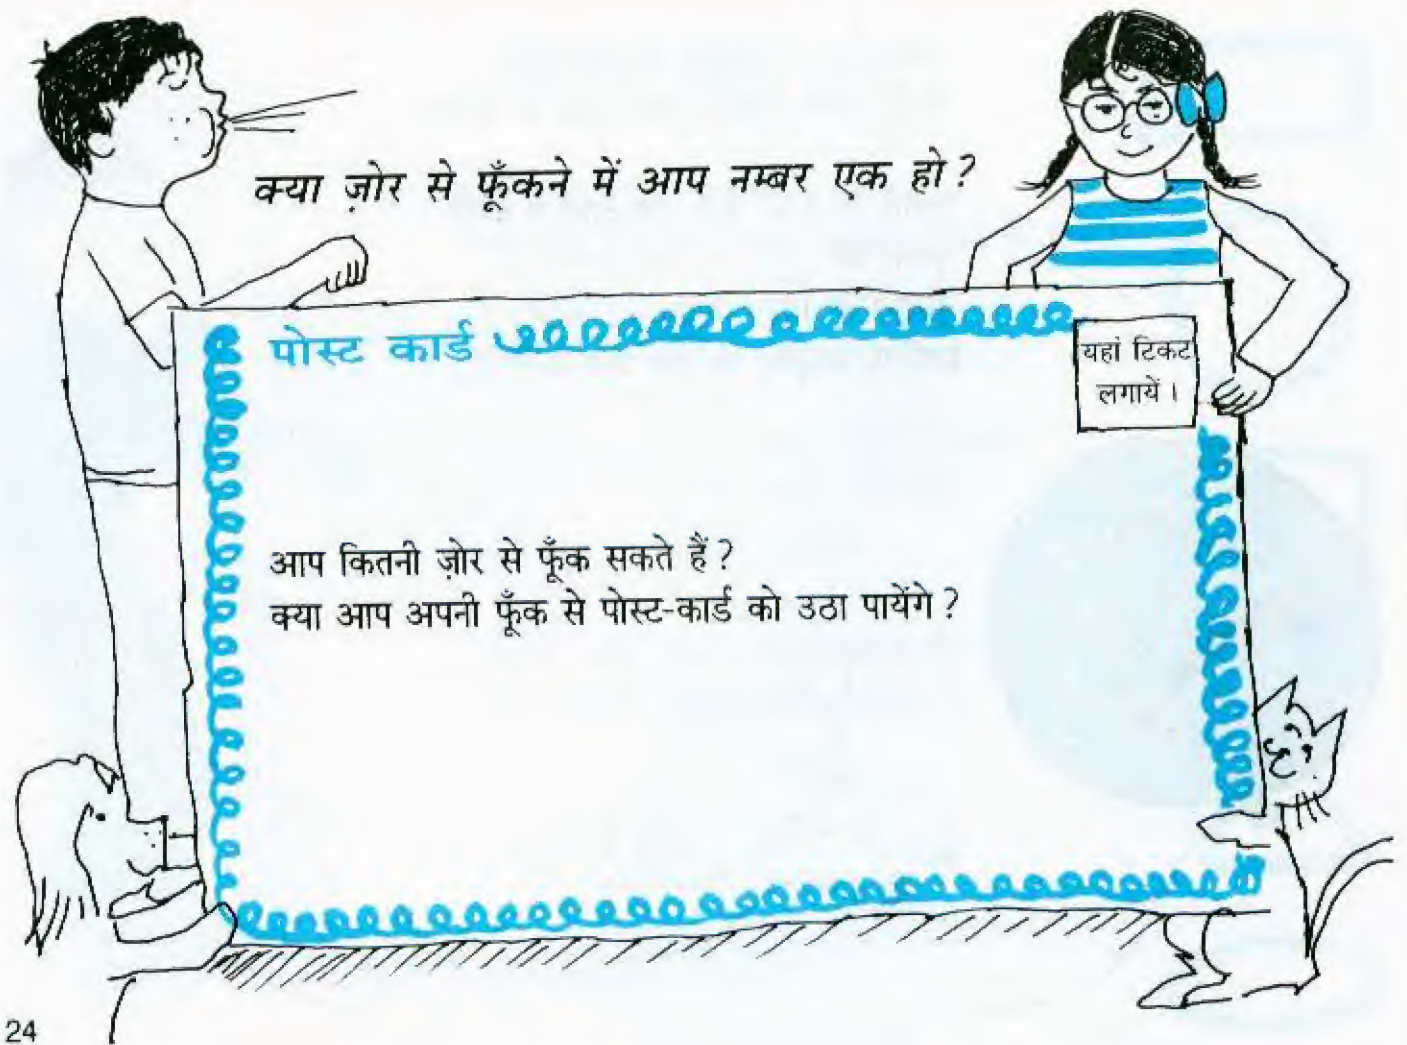 क्या ज़ोर से फूँकने में आप नम्बर एक हो ?
पोस्ट कार्ड
यहां टिकट
लगायें ।
आप कितनी ज़ोर से फूँक सकते हैं ?
क्या आप अपनी फूँक से पोस्ट-कार्ड को उठा पायेंगे ?
24